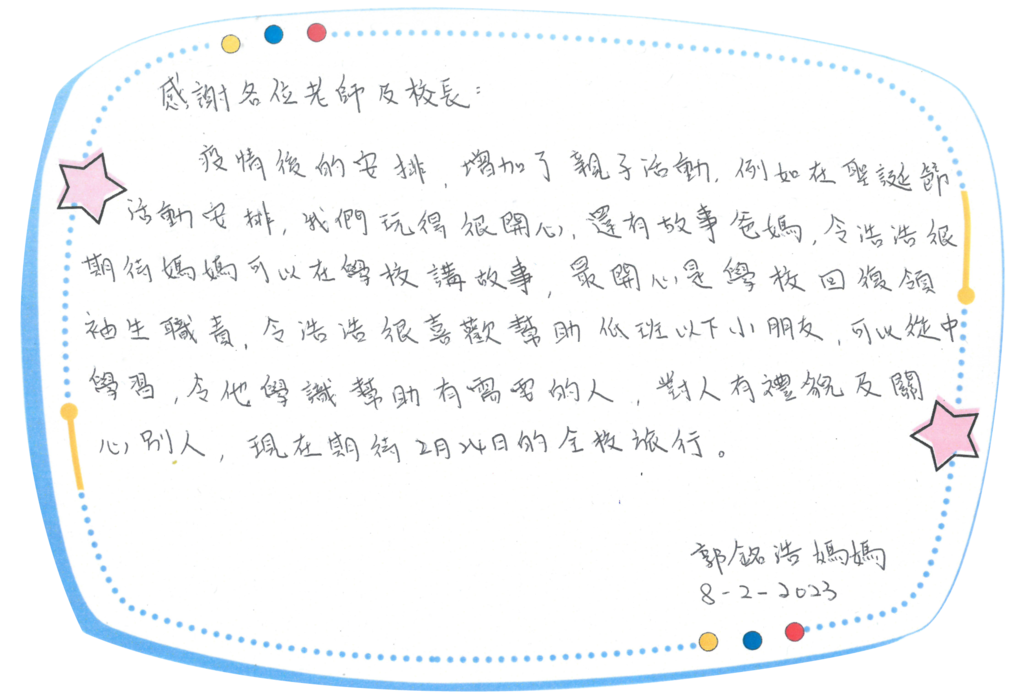 感謝各位老師及校長：
疫情後的安排，增加了親子活動，例如在聖誕節
活動安排，我們玩得很開心，還有故事爸媽，令浩浩很
期待媽媽可以在學校講故事，最開心是學校回復領
袖生職責，令浩浩很喜歡幫助低班以下小朋友，可以從中
學習，令他學識幫助有需要的人，對人有禮貌及關
心別人，現在期待2月24日的全校旅行。
郭銘浩媽媽
8-2-2023